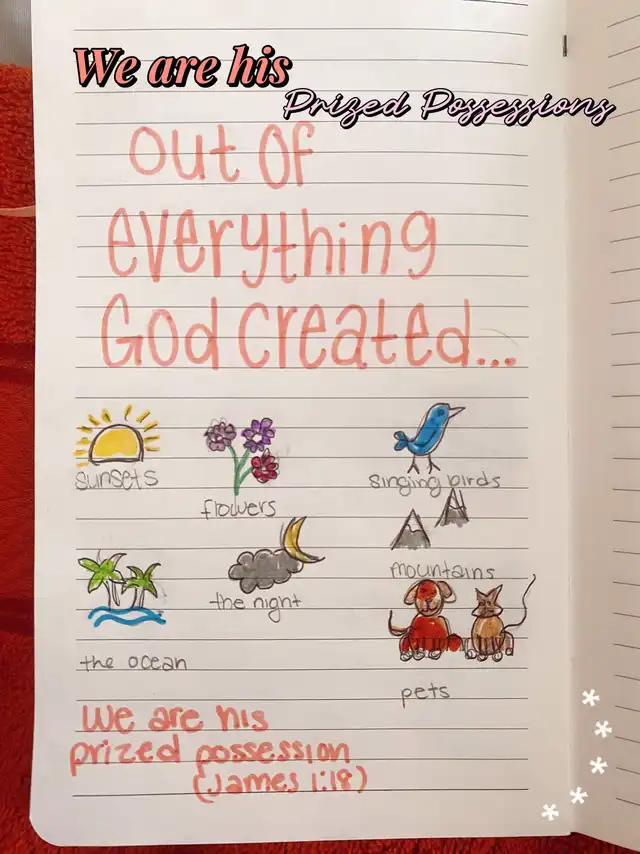 We are his
Prized Possessions
out of
everything
God created...
sunsets
flowers
singing birds
the ocean
the night
mountains
pets
We are his
prized possession
(James 1:18)